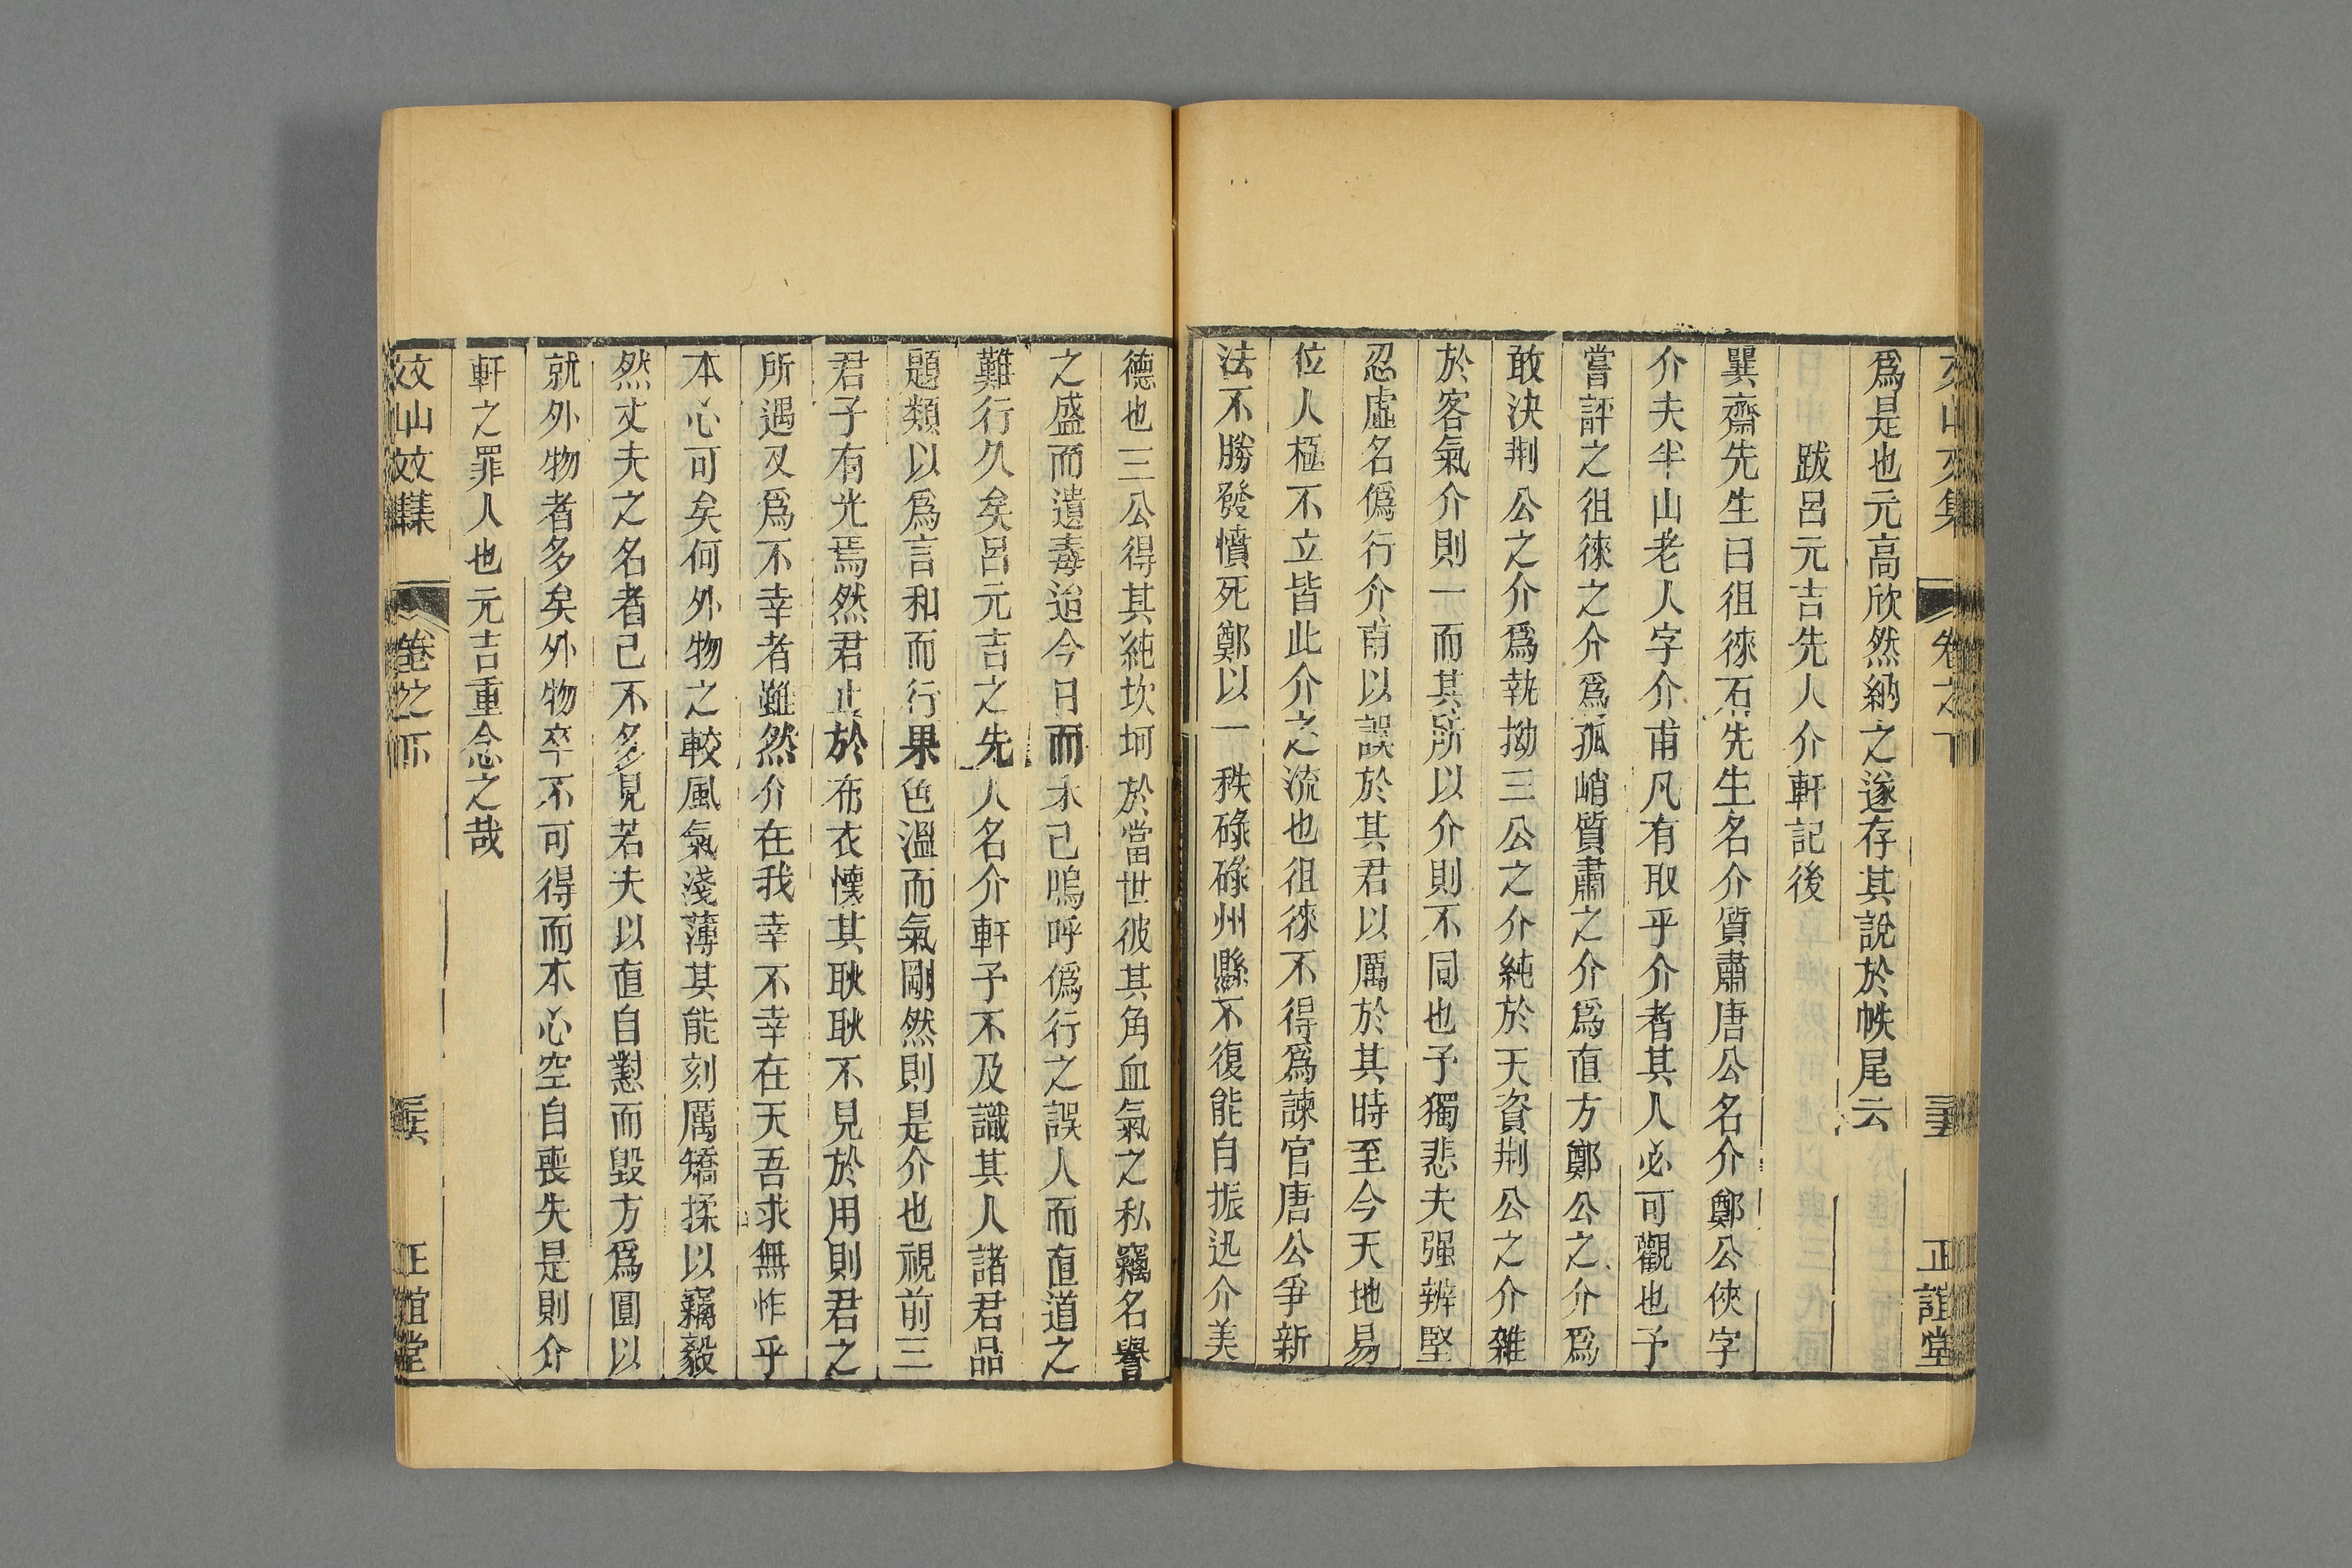 文山文集 卷之下 正誼堂
爲是也元高欣然納之遂存其說於帙尾云
跋呂元吉先人介軒記後
巽齋先生曰徂徠石先生名介質肅唐公名介鄭公俠字
介夫半山老人字介甫凡有取乎介者其人必可觀也予
嘗評之徂徠之介爲孤峭質肅之介爲直方鄭公之介爲
敢決荆公之介爲執拗三公之介純於天資荆公之介雜
於客氣介則一而其所以介則不同也予獨悲夫强辨堅
忍虛名僞行介甫以誤於其君以厲於其時至今天地易
位人極不立皆此介之流也徂徠不得爲諫官唐公爭新
法不勝發憤死鄭以一秩碌碌州縣不復能自振迅介美
德也三公得其純坎坷於當世彼其角血氣之私竊名譽
之盛而遺毒迨今日而未已嗚呼僞行之誤人而直道之
難行久矣呂元吉之先人名介軒予不及識其人諸君品
題類以爲言和而行果色溫而氣剛然則是介也視前三
君子有光焉然君止於布衣懷其耿耿不見於用則君之
所遇又爲不幸者雖然介在我幸不幸在天吾求無怍乎
本心可矣何外物之較風氣淺薄其能刻厲矯揉以竊毅
然丈夫之名者已不多見若夫以直自懟而毀方爲圓以
就外物者多矣外物卒不可得而本心空自喪失是則介
軒之罪人也元吉重念之哉
文山文集 卷之下 正誼堂